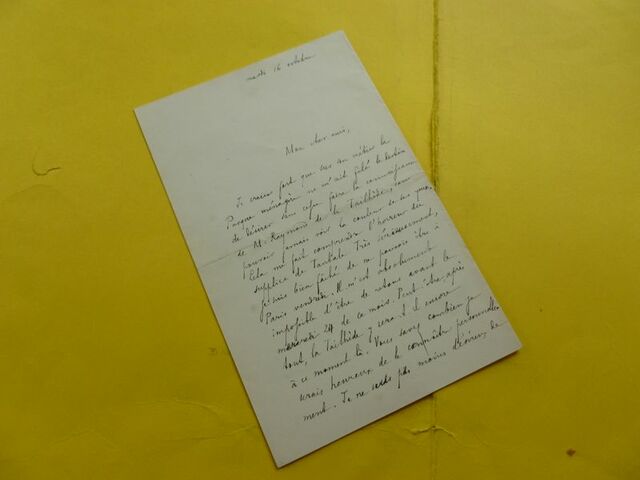 mardi 16 octobre
Mon cher ami,
Je crains fort que sur son métier la
Parque ménagère ne m'ait filé le destin
de désirer sans cesse faire la connaissance
de M. Raymond de la Tailhède, sans
pouvoir jamais voir la couleur de ses yeux.
Cela me fait comprendre l'horreur du
supplice de Tantale. Très sérieusement,
je suis bien fâché de ne pouvoir être à
Paris vendredi. Il m'est absolument
impossible d'être de retour avant le
mercredi 24 de ce mois. Peut-être après
tout, la Tailhède y sera-t-il encore
à ce moment là. Vous savez combien je
serais heureux de le connaître personnelle-
ment. Je ne suis pas moins désireux de